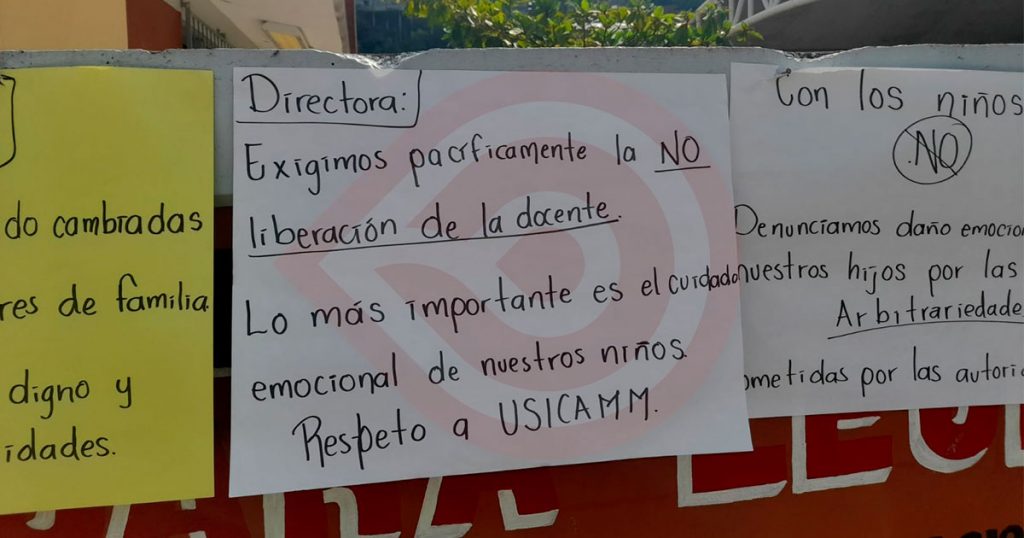 do cambiadas
res de familia
digno y
idades.
Directora:
Exigimos pacíficamente la NO
liberación de la docente.
Lo más importante es el cuidado
emocional de nuestros niños.
Respeto a USICAMM.
Con los niños
NO
Denunciamos daño emocio
nuestros hijos por las
Arbitrariedade
ometidas por las autori